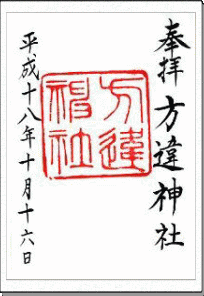 奉拝 方違神社
方違神社
平成十八年十月十六日